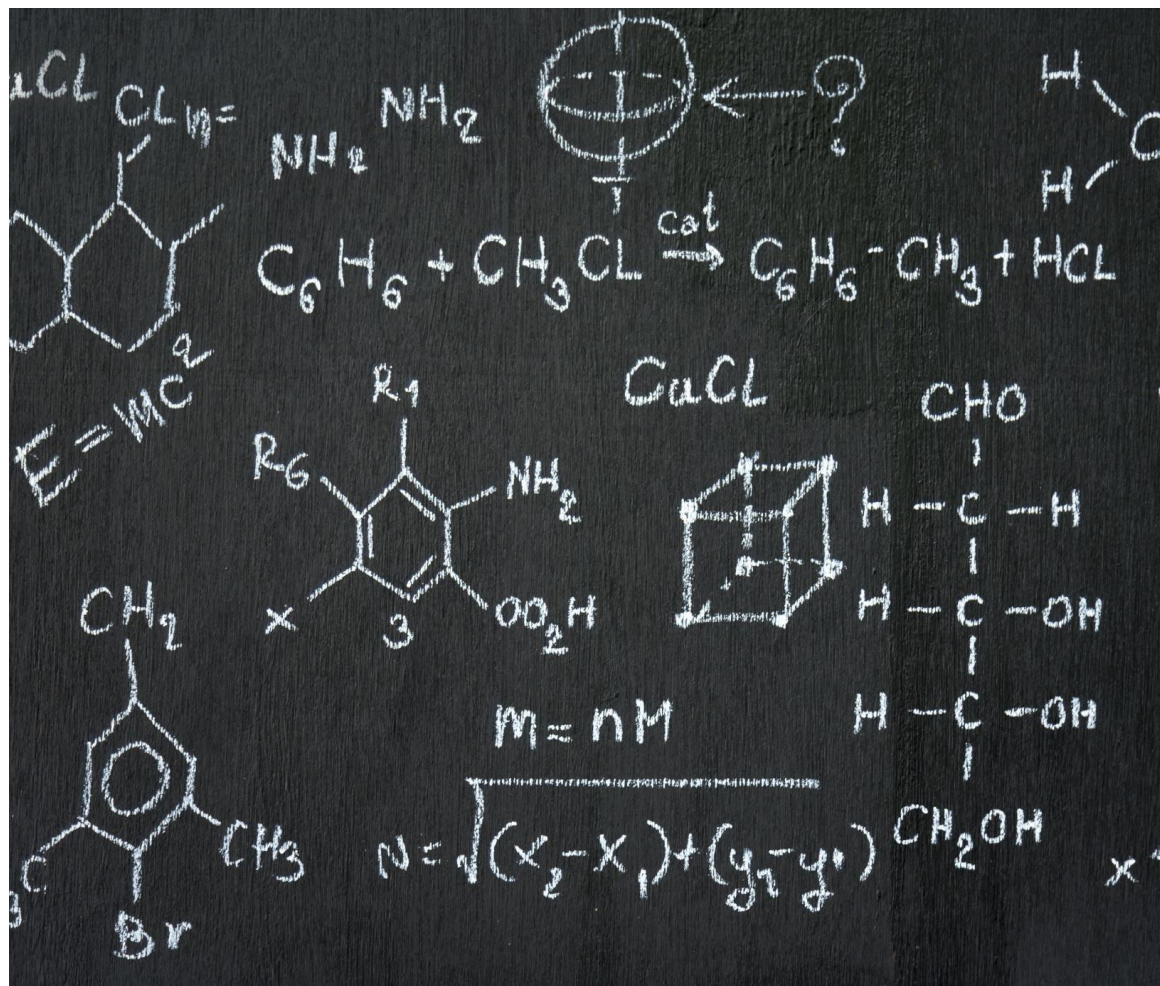 uCL
CLn=
NH2
NH2
?
H
H
C6H6 + CH3CL cat → C6H6-CH3 + HCL
E=MC2
R1
R6
NH2
X
3
OO2H
CuCL
CHO
H-C-H
H-C-OH
H-C-OH
CH2OH
CH2
CH3
Br
M=nM
N=√(x2-x1)+(y2-y1)
x